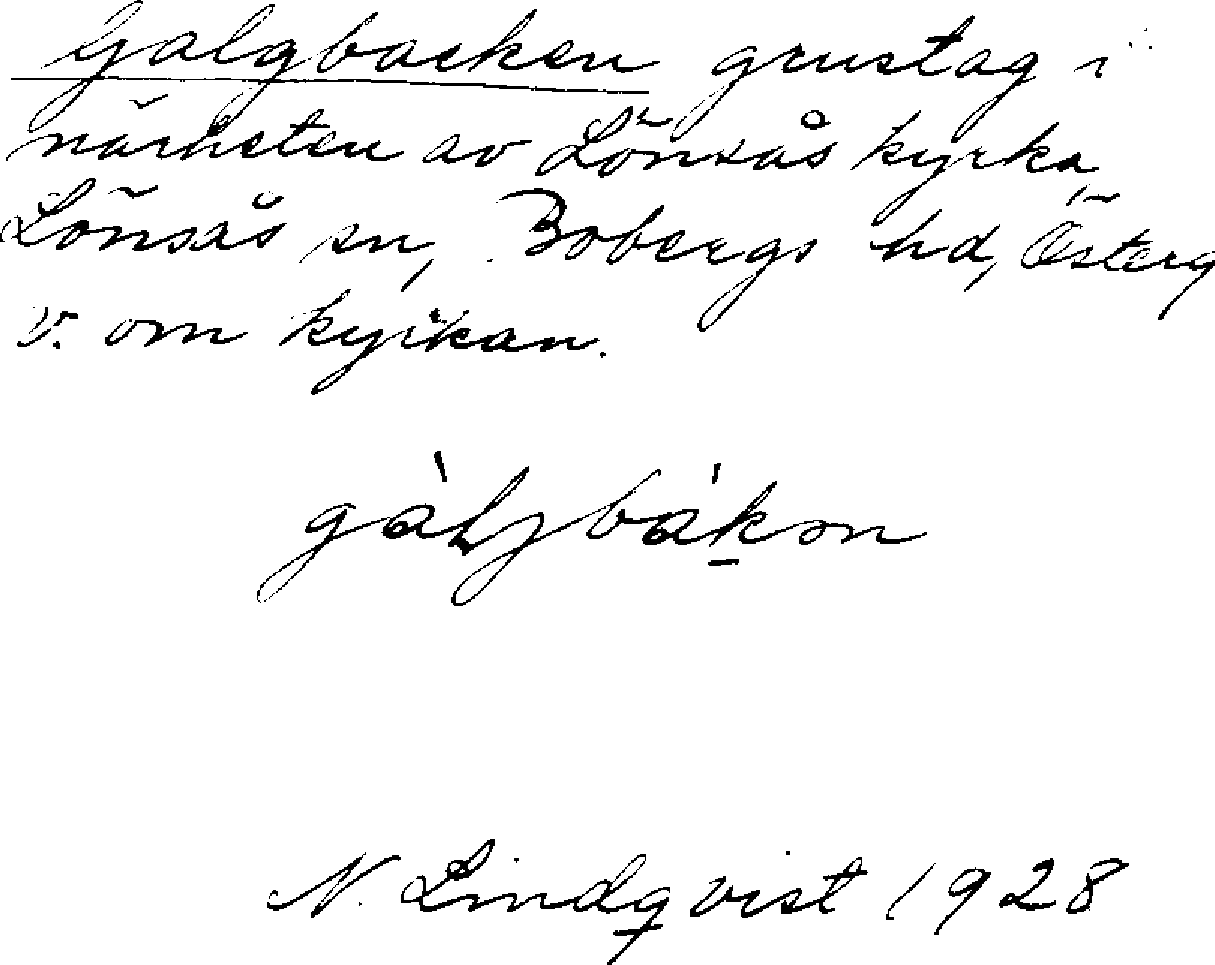 Galgbacken grustag i
närheten av Lönsås kyrka,
Lönsås sn, Bobergs hd, Österg
v. om kyrkan.
gàljbákən
N. Lindqvist 1928